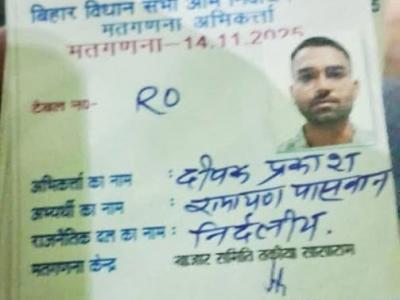 बिहार विधान सभा आम
मतगणना अभिकर्त्ता
मतगणना-14.11.2025
5
टेबल न०- RO
अभिकर्त्ता का नाम : दीपक प्रकाश
अभ्यर्थी का नाम : रामायण पासवान
राजनैतिक दल का नाम : निर्दलीय.
मतगणना केन्द्र बाजार समिति तकीया सासाराम